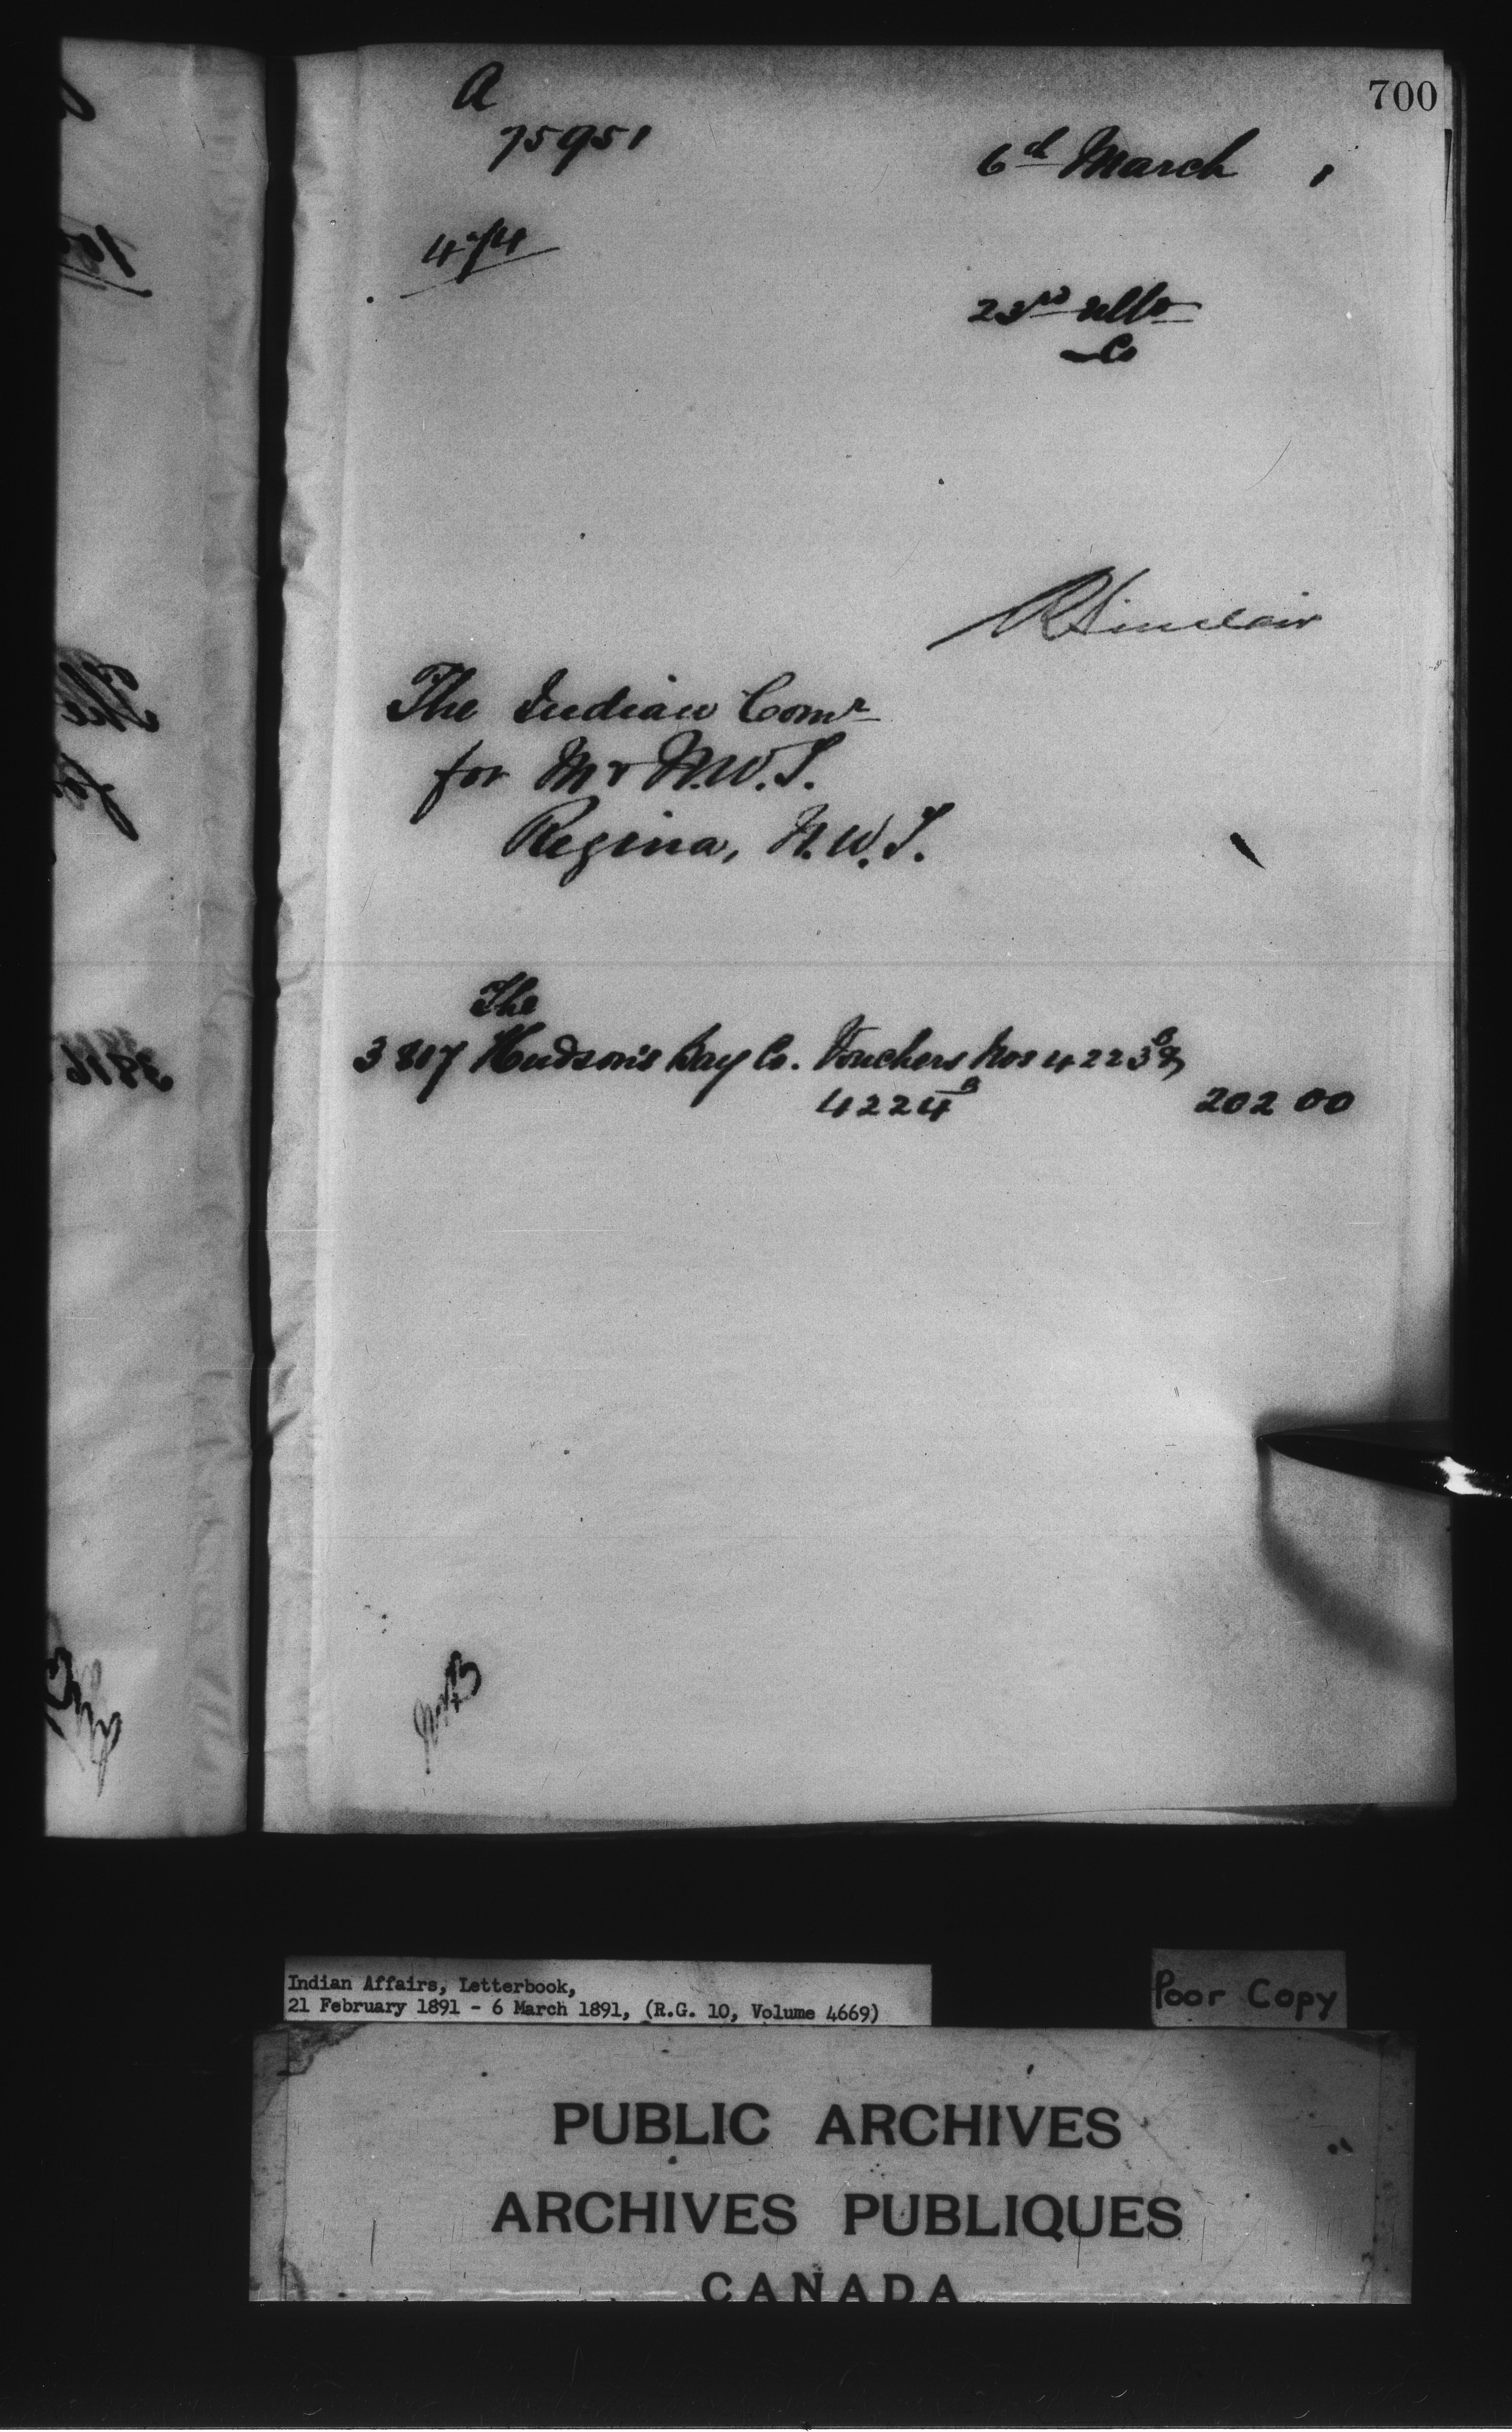 700
A
75951
6th March 1
23rd ulto
R Sinclair
The Indian Comr
for M & N.W.T.
Regina, N.W.T.
The
3817 Hudson's Bay Co. Vouchers Nos 4223B &
4224B 202 00
Indian Affairs, Letterbook,
21 February 1891 - 6 March 1891, (R.G. 10, Volume 4669)
Poor Copy
PUBLIC ARCHIVES
ARCHIVES PUBLIQUES
CANADA